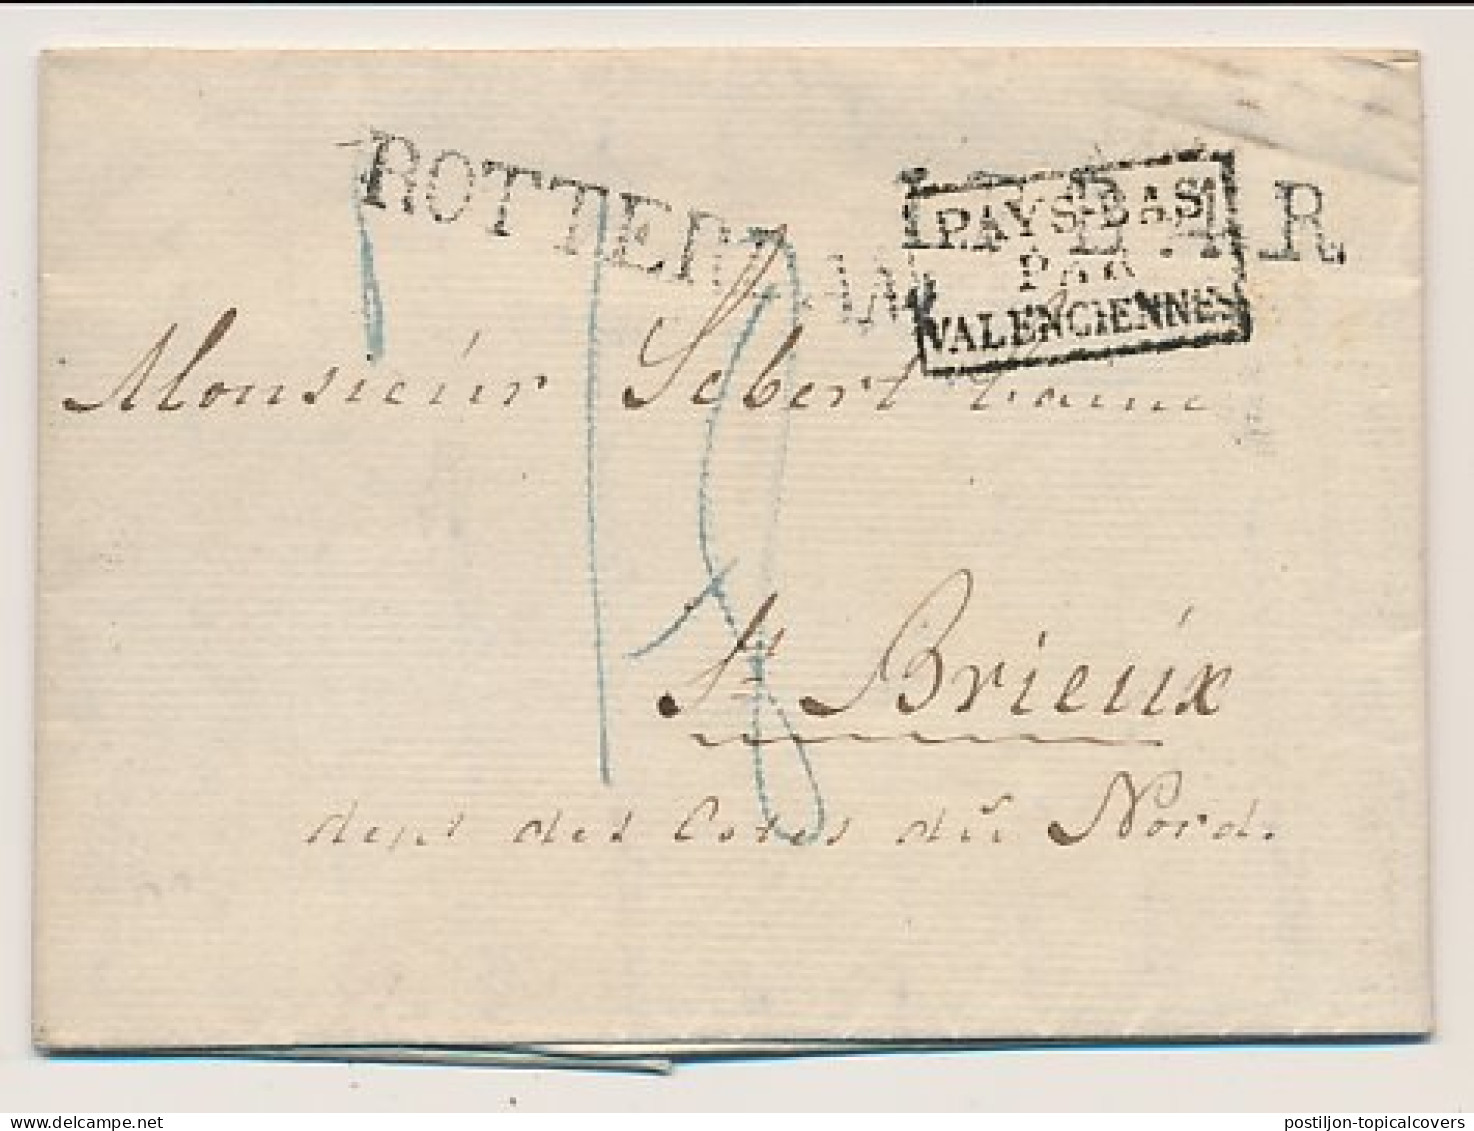 ROTTERDAM
L.P.B.4.R.
PAYS-BAS
PAR
VALENCIENNES
Monsieur Sebert
18
St Brieux
dept des Cotes du Nord.
postiljon-topicalcovers